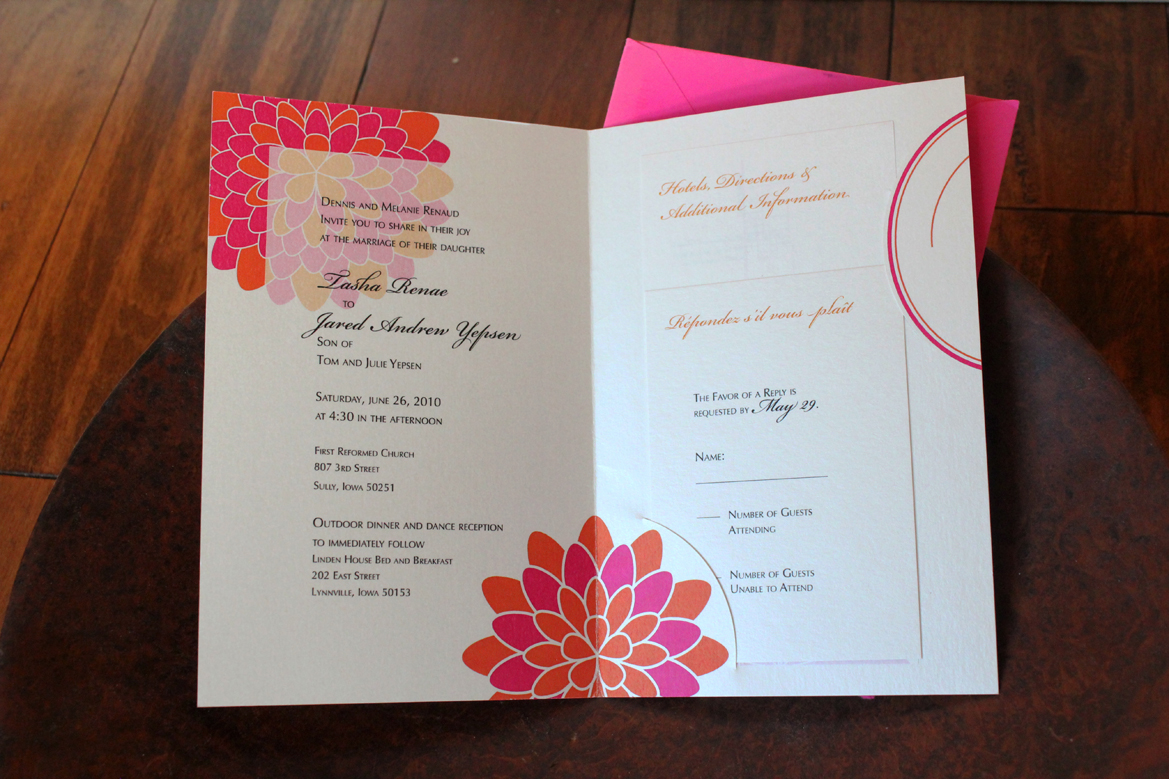 Dennis and Melanie Renaud
Invite you to share in their joy
at the marriage of their daughter
Tasha Renae
to
Jared Andrew Yepsen
Son of
Tom and Julie Yepsen
Saturday, June 26, 2010
at 4:30 in the afternoon
First Reformed Church
807 3rd Street
Sully, Iowa 50251
Outdoor dinner and dance reception
to immediately follow
Linden House Bed and Breakfast
202 East Street
Lynnville, Iowa 50153
Hotels, Directions &
Additional Information.
Répondez s'il vous plaît
The Favor of a Reply is
requested by May 29.
Name:
Number of Guests
Attending
Number of Guests
Unable to Attend